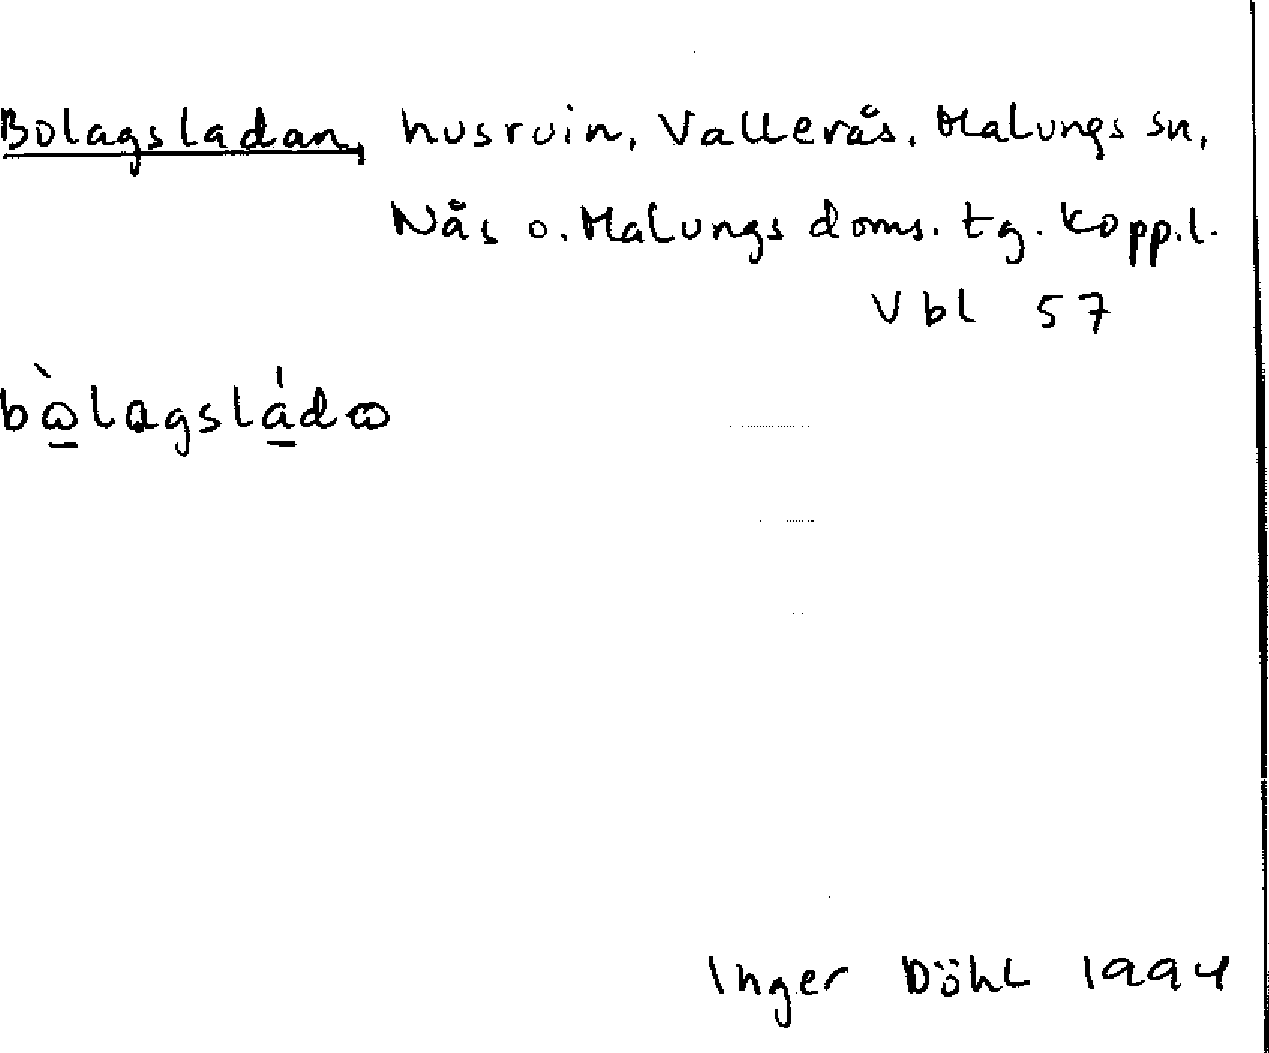 Bolagsladan, husruin, Vallerås, Malungs sn,
Nås o. Malungs doms. tg. Kopp.l.
Vbl 57
bꞷ̠̀lagslá̠dꞷ
Inger Döhl 1994